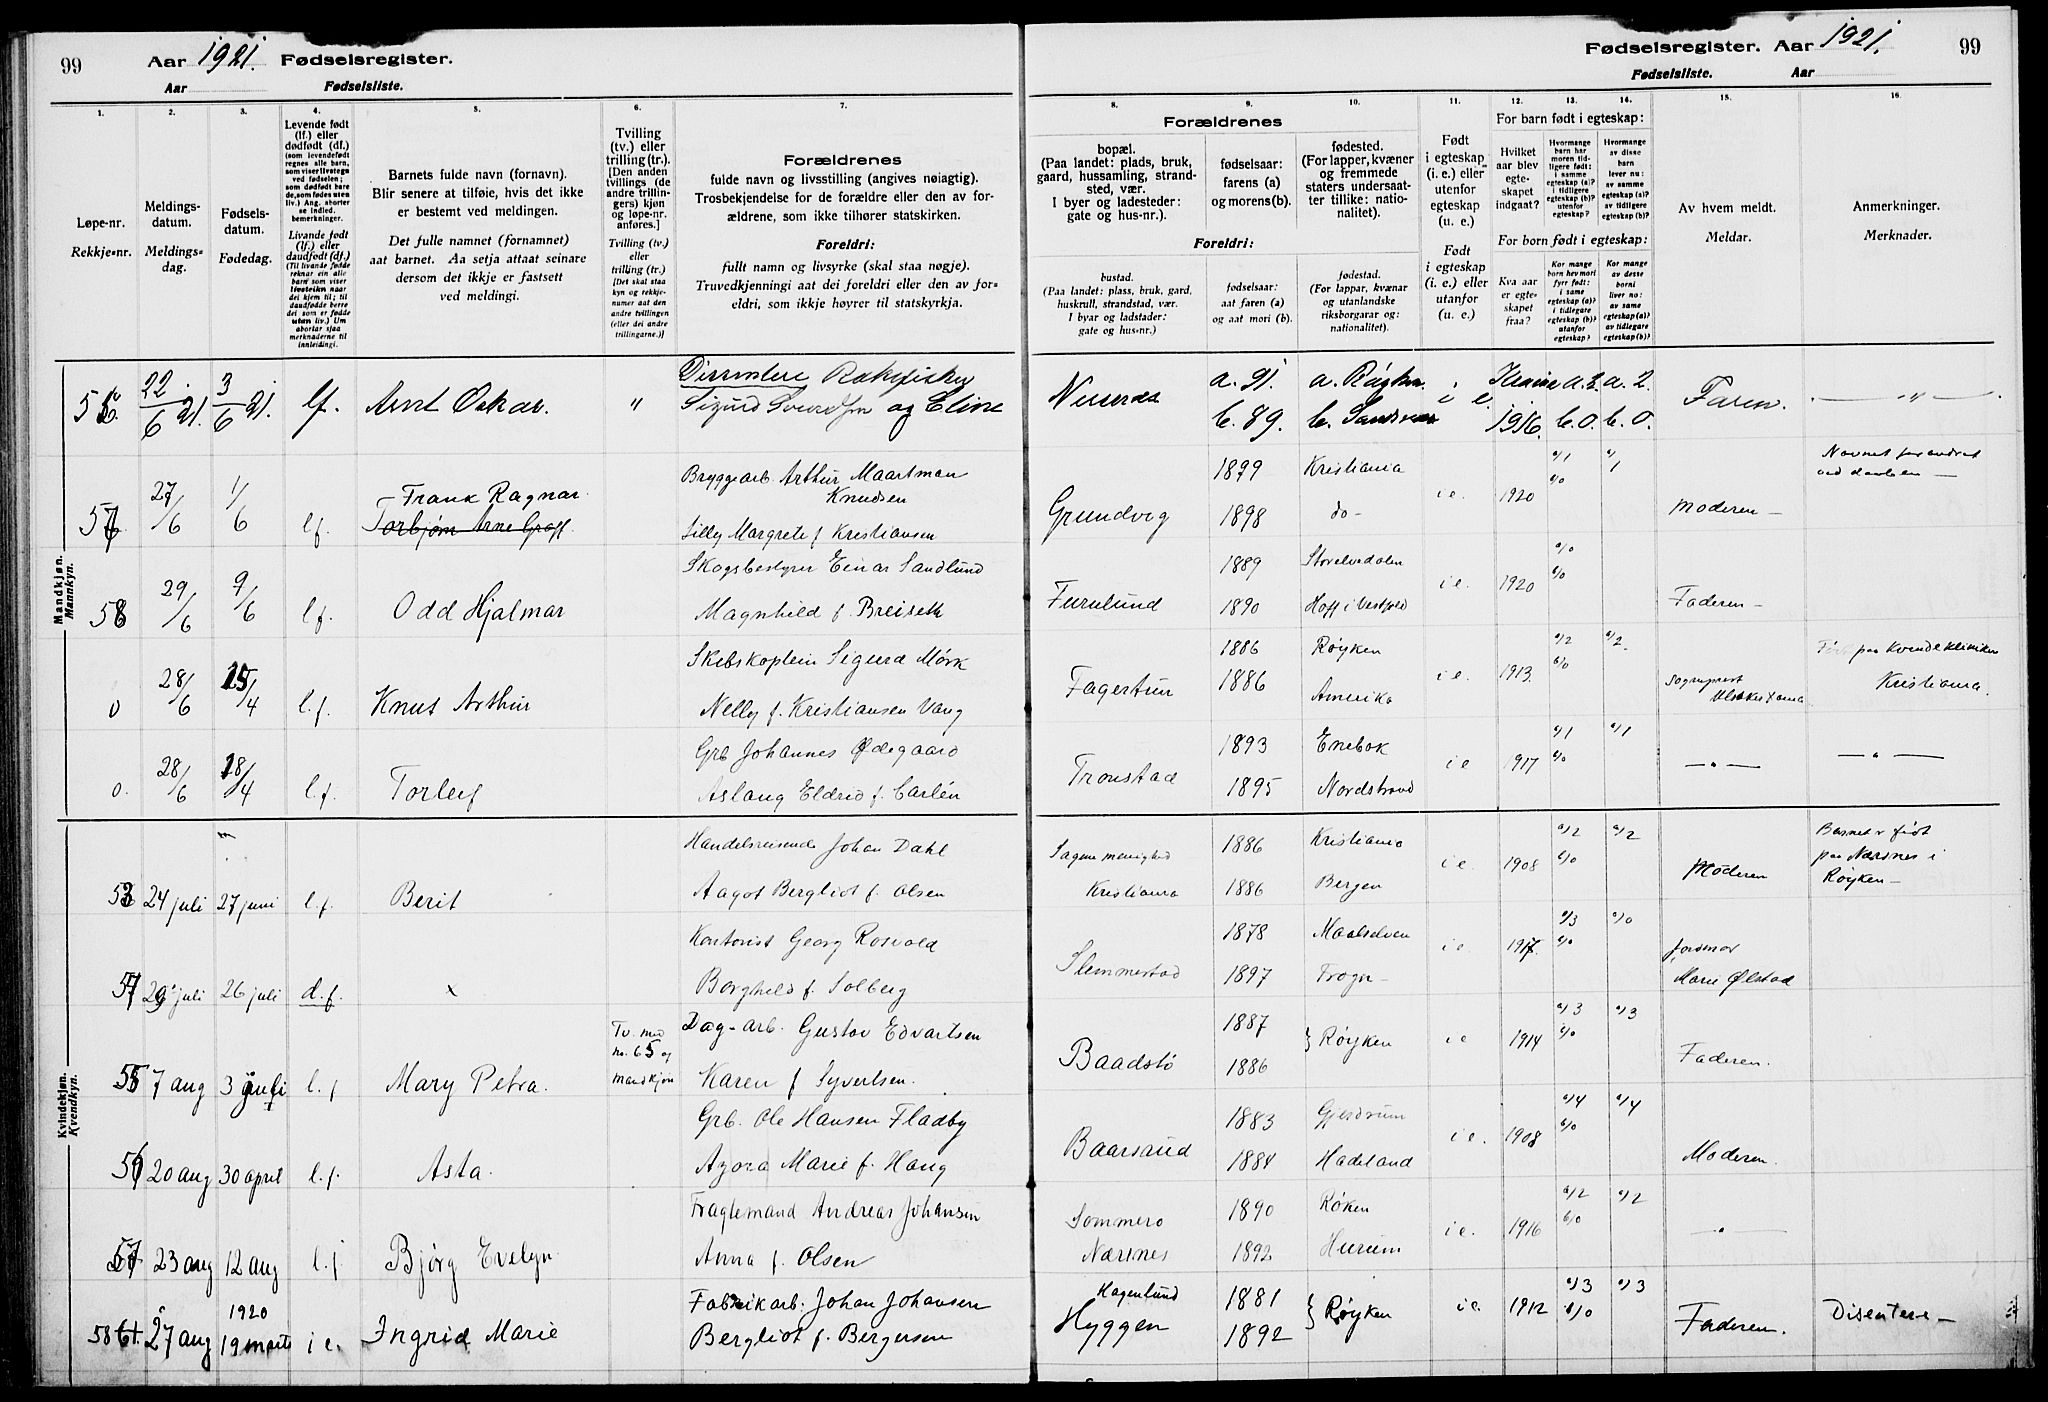 99 Aar 1921. Fødselsregister.
Aar Fødselsliste.
1. 2. 3. 4. 5. 6. 7.
Løpe-nr.
Rekkje-nr.
Meldings-
datum.
Meldings-
dag.
Fødsels-
datum.
Fødedag.
Levende født
(lf.) eller
dødfødt (df.)
(som levendefødt
regnes alle barn,
som viser livstegn
ved fødselen;
som dødfødt bare
de, som fødes uten
liv.) Ang. aborter
se indled.
bemerkninger.
Livande født
(lf.) eller
daudfødt (df.)
(Til livande fødde
reknar ein alle
barn som viser
livsteikn naar
dei kjem til; til
daudfødde berre
dei som er fødde
utan liv.) Um
abortar sjaa
merknaderne til
innleidingi.
Barnets fulde navn (fornavn).
Blir senere at tilføie, hvis det ikke
er bestemt ved meldingen.
Det fulle namnet (fornamnet)
aat barnet. Aa setja attaat seinare
dersom det ikkje er fastsett
ved meldingi.
Tvilling
(tv.) eller
trilling (tr.).
[Den anden
tvillings (de
andre trillin-
gers) kjøn
og løpe-nr.
anføres.]
Tvilling (tv.)
eller
trilling (tr.)
[Det skal staa
kyn og rekkje-
numer aat den
andre tvillingen
(eller dei andre
trillingarne.)]
Forældrenes
fulde navn og livsstilling (angives nøiagtig).
Trosbekjendelse for de forældre eller den av for-
ældrene, som ikke tilhører statskirken.
Foreldri:
fullt namn og livsyrke (skal staa nøgje).
Truvedkjenningi aat dei foreldri eller den av for-
eldri, som ikkje høyrer til statskyrkja.
Mandkjøn.
Mannkyn.
22/6 21. 3/6 21. lf. Arnt Oskar. " Dissentere Rakefisker
Sigurd Sivertsen og Eline
57 27/6 1/6 l.f. Frank Ragnar.
Torbjørn Arne Graff.
Bryggearb. Arthur Maartman
Knudsen
Lilly Margrete f. Kristiansen
58 29/6 9/6 l.f. Odd Hjalmar
Skogsbestyrer Einar Sandlund
Magnhild f. Breiseth
0 28/6 15/4 l.f. Knut Arthur
Skibskaptein Sigurd Mørk
Nelly f. Kristiansen Vang
0. 28/6 18/4 l.f. Torleif
Grb Johannes Ødegaard
Aslaug Eldrid f. Carlén
Kvindekjøn.
Kvendkyn.
53 24 juli 27 juni l.f. Berit
Handelsreisende Johan Dahl
Aagot Bergliot f. Olsen
29 juli 26 juli d.f. x
Kontorist Georg Rosvold
Borghild f. Solberg
55 7 aug 3 juli l.f Mary Petra.
Tv. med
nr. 65 og
mandkjøn
Dag-arb. Gustav Edvartsen
Karen f Syvertsen.
56 20 aug 30 april l.f. Asta.
Grb. Ole Hansen Fladby
Azora Marie f. Haug
57 23 aug 12 aug l.f Bjørg Evelyn
Fragtemand Andreas Johansen
Anna f. Olsen
58 27 aug 1920
19 marts i e. Ingrid Marie
Fabrikarb. Johan Johansen
Bergliot f. Bergersen
Fødselsregister. Aar 1921. 99
Fødselsliste. Aar
8. 9. 10. 11. 12. 13. 14. 15. 16.
Forældrenes
bopæl.
(Paa landet: plads, bruk,
gaard, hussamling, strand-
sted, vær.
I byer og ladesteder:
gate og hus-nr.).
fødselsaar:
farens (a)
og morens (b).
fødested.
(For lapper, kvæner
og fremmede
staters undersaat-
ter tillike: natio-
nalitet).
Foreldri:
bustad.
(Paa landet: plass, bruk, gard,
huskrull, strandstad, vær.
I byar og ladstader:
gate og hus-nr.)
fødselsaar:
aat faren (a)
og aat mori (b).
fødestad.
(For lappar, kvænar
og utanlandske
riksborgarar og:
nationalitet).
Født
i egteskap
(i. e.) eller
utenfor
egteskap
(u. e.)
Født
i egteskap
(i. e.) eller
utanfor
(u. e.)
For barn født i egteskap:
Hvilket
aar blev
egte-
skapet
indgaat?
Hvormange
barn har
moren tid-
ligere født:
i samme
egteskap (a)?
i tidligere
egteskap (b)?
utenfor
egteskap?
Hvormange
av disse
barn
lever nu:
av samme
egteskap (a)?
av tidligere
egteskap (b)?
For born født i egteskap:
Kva aar
er egte-
skapet
fraa?
Kor mange
born hev mori
fyrr født:
i same
egteskap (a)?
i tidlegare
egteskap (b)?
utanfor
egteskap?
Kor mange
av desse
borni
liver no:
av same
egteskap (a)?
av tidlegare
egteskap (b)?
Av hvem meldt.
Meldar.
Anmerkninger.
Merknader.
a. 91. a. Røyken i e. a. 2. a. 2. Faren. — " —
b. 89. b. Sandsvær 1916. b. 0. b. 0.
Grundvig 1899 Kristiania i e. 1920 a/1 b/0 a/1 Moderen —
1898 do —
Navnet forandret
ved daaben —
Furulund 1889 i e. 1920 a/0 b/0 Faderen —
1890 Hoff i Vestfold
Fagertun 1886 Røyken i e. 1913. a/2 b/0 a/2.
1886 Amerika
Sogneprest
Født paa Kvindeklinikken
Kristiania.
Tronstad 1893 Enebak i e 1917 a/1 b/0 a/1 — " — — " —
1895 Nordstrand
Sagene menighed
Kristiania
1886 Kristiania i e. 1908 a/2 b/0 a/2 Moderen
1886 Bergen
Barnet er født
paa Nærsnes i
Røyken —
Slemmestad 1878 Maalselven i e. 1917. a/3 b/0 a/0
1897 Frogn —
Jordmor
Marie Ølstad
Baadstø 1887 } Røyken i e 1914 a/3 b/0 a/3 Faderen.
1886
Baarsrud 1883 Gjerdrum i e. 1908 a/4 b/0 a/4 Moderen.
1884 Hadeland
Sommero
Nærsnes
1890 Røken i e. 1916 a/2 b/0 a/2 — " —
1892 Hurum
Hagenlund
Hyggen
1881 } Røyken i e. 1912 a/3 b/0 a/3 Faderen. Disentere —
1892